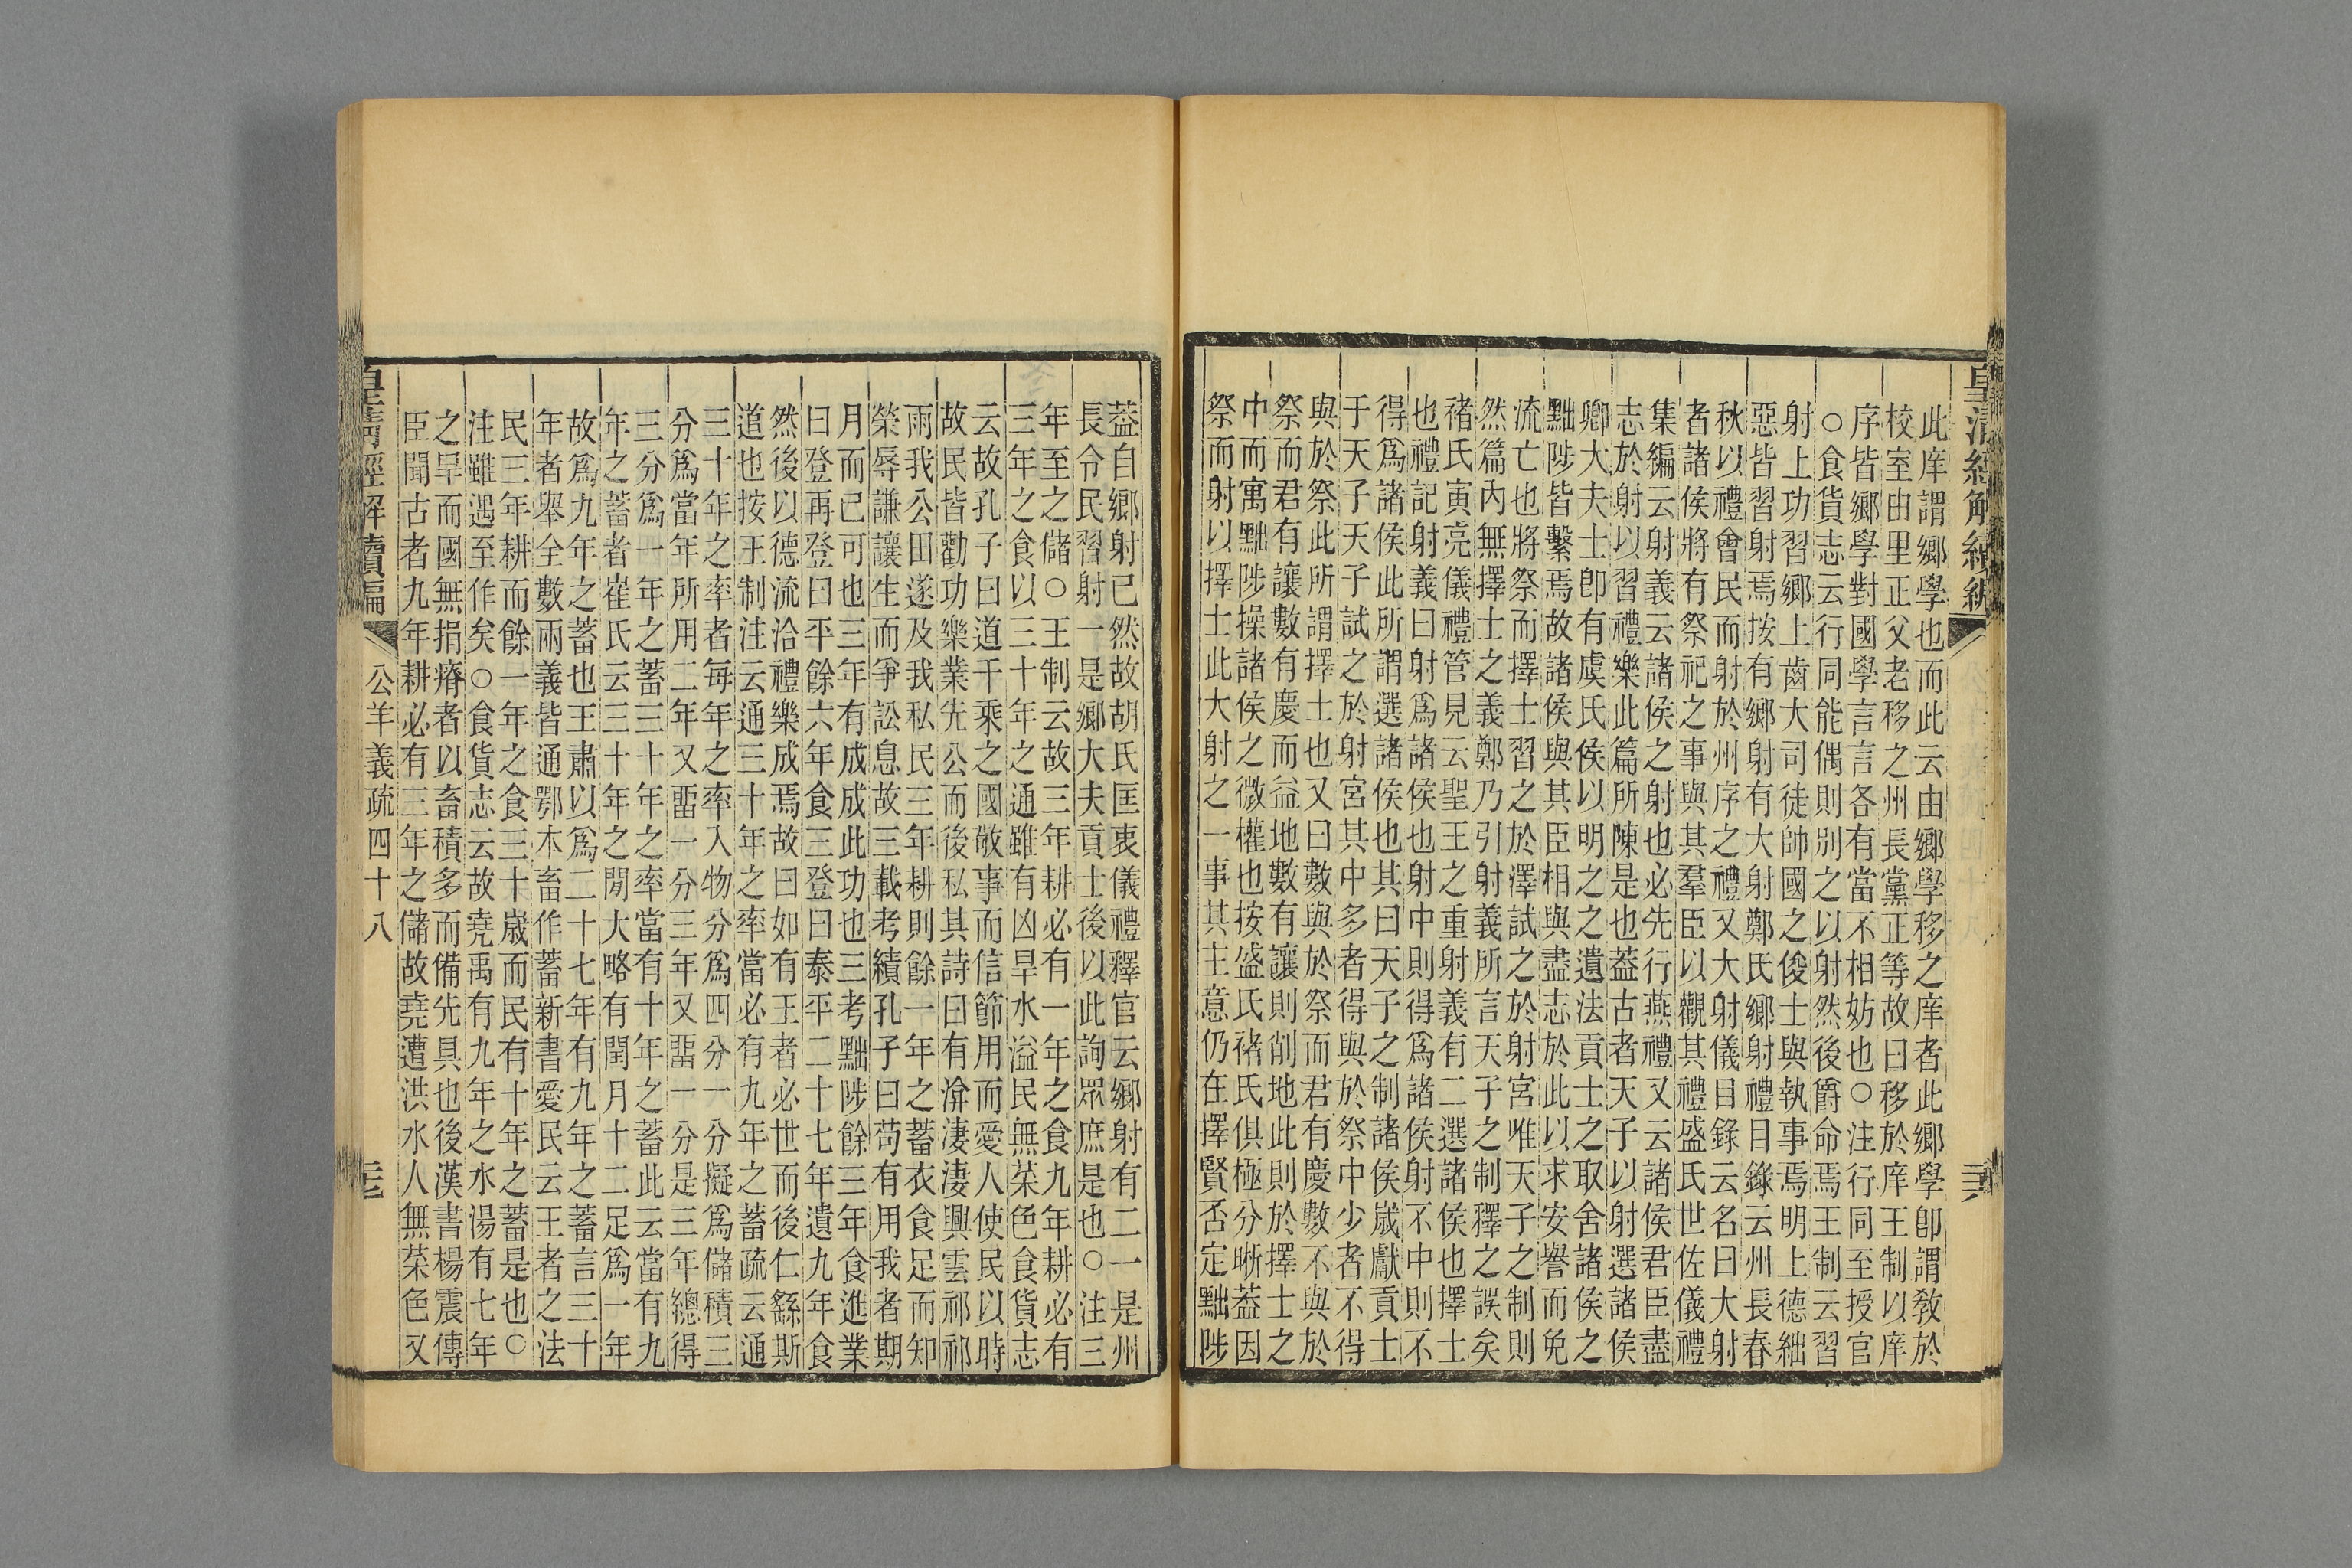 皇清經解續編
此庠謂鄉學也而此云由鄉學移之庠者此鄉學卽謂教於
校室由里正父老移之州長黨正等故曰移於庠王制以庠
序皆鄉學對國學言言各有當不相妨也○注行同至授官
○食貨志云行同能偶則別之以射然後爵命焉王制云習
射上功習鄉上齒大司徒帥國之俊士與執事焉明上德絀
惡皆習射焉按有鄉射有大射鄭氏鄉射禮目錄云州長春
秋以禮會民而射於州序之禮又大射儀目錄云名曰大射
者諸侯將有祭祀之事與其羣臣以觀其禮盛氏世佐儀禮
集編云射義云諸侯之射也必先行燕禮又云諸侯君臣盡
志於射以習禮樂此篇所陳是也葢古者天子以射選諸侯
卿大夫士卽有虞氏侯以明之之遺法貢士之取舍諸侯之
黜陟皆繫焉故諸侯與其臣相與盡志於此以求安譽而免
流亡也將祭而擇士習之於澤試之於射宮唯天子之制則
然篇內無擇士之義鄭乃引射義所言天子之制釋之誤矣
褚氏寅亮儀禮管見云聖王之重射義有二選諸侯也擇士
也禮記射義曰射爲諸侯也射中則得爲諸侯射不中則不
得爲諸侯此所謂選諸侯也其曰天子之制諸侯歲獻貢士
于天子天子試之於射宮其中多者得與於祭中少者不得
與於祭此所謂擇士也又曰數與於祭而君有慶數不與於
祭而君有讓數有慶而益地數有讓則削地此則於擇士之
中而寓黜陟操諸侯之微權也按盛氏褚氏俱極分晰葢因
祭而射以擇士此大射之一事其主意仍在擇賢否定黜陟
葢自鄉射已然故胡氏匡衷儀禮釋官云鄉射有二一是州
長令民習射一是鄉大夫貢士後以此詢眾庶是也○注三
年至之儲○王制云故三年耕必有一年之食九年耕必有
三年之食以三十年之通雖有凶旱水溢民無菜色食貨志
云故孔子曰道千乘之國敬事而信節用而愛人使民以時
故民皆勸功樂業先公而後私其詩曰有渰淒淒興雲祁祁
雨我公田遂及我私民三年耕則餘一年之蓄衣食足而知
榮辱謙讓生而爭訟息故三載考績孔子曰苟有用我者期
月而已可也三年有成成此功也三考黜陟餘三年食進業
曰登再登曰平餘六年食三登曰泰平二十七年遺九年食
然後以德流洽禮樂成焉故曰如有王者必世而後仁繇斯
道也按王制注云通三十年之率當必有九年之蓄疏云通
三十年之率者每年之率入物分爲四分一分擬爲儲積三
分爲當年所用二年又畱一分三年又畱一分是三年總得
三分爲一年之蓄三十年之率當有十年之蓄此云當有九
年之蓄者崔氏云三十年之閒大略有閏月十二足爲一年
故爲九年之蓄也王肅以爲二十七年有九年之蓄言三十
年者舉全數兩義皆通鄂本畜作蓄新書愛民云王者之法
民三年耕而餘一年之食三十歲而民有十年之蓄是也○
注雖遇至作矣○食貨志云故堯禹有九年之水湯有七年
之旱而國無捐瘠者以畜積多而備先具也後漢書楊震傳
臣聞古者九年耕必有三年之儲故堯遭洪水人無菜色又
皇清經解續編
公羊義疏四十八